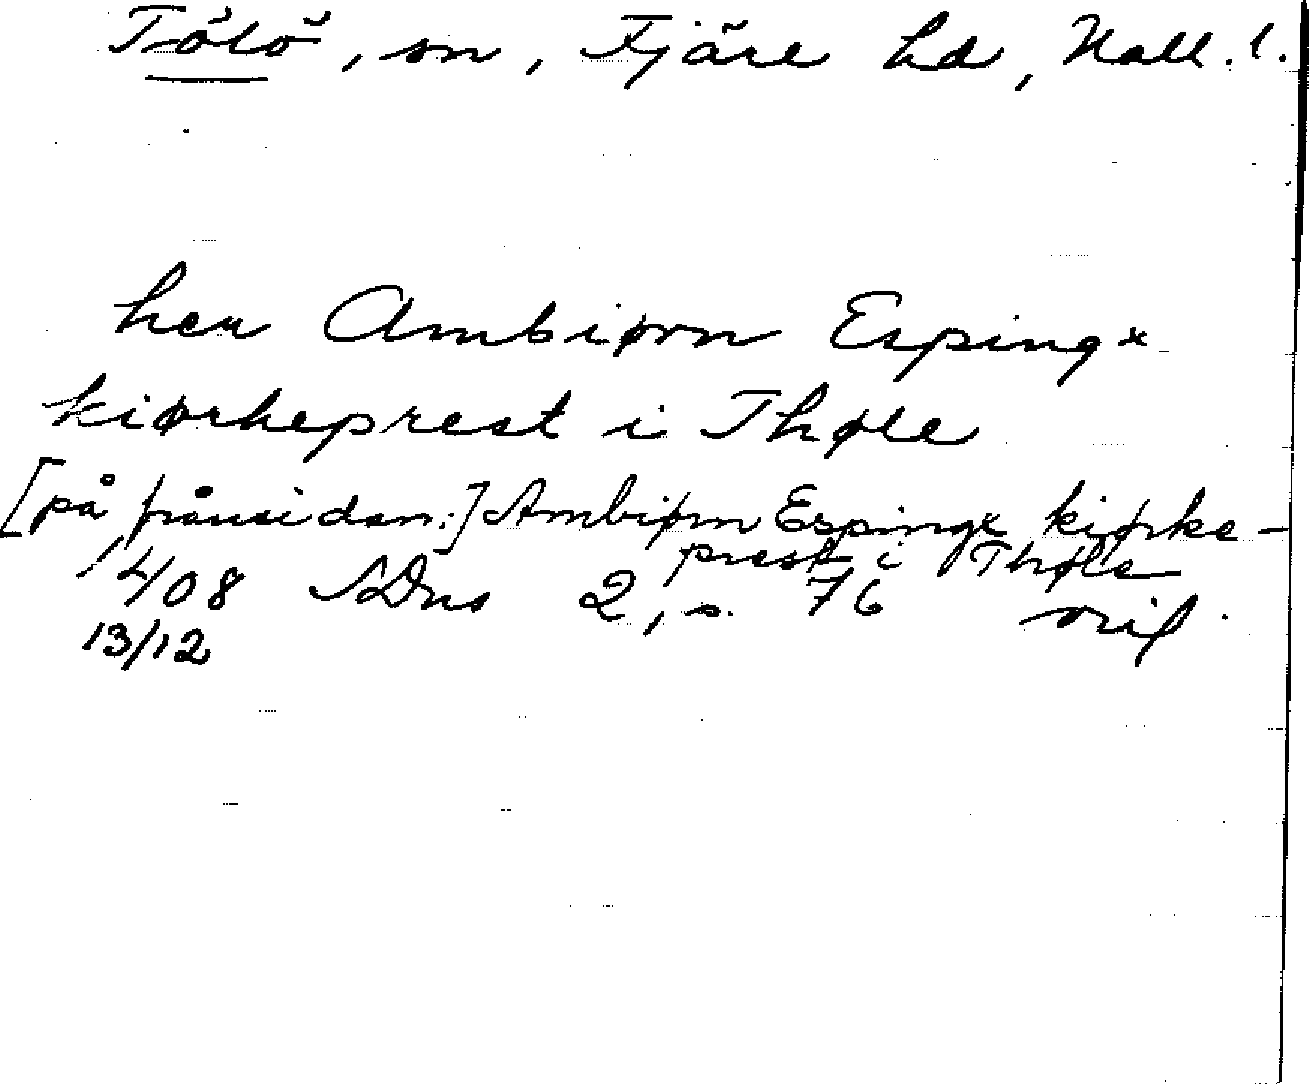 Tölö, sn, Fjäre hd, Hall. l.
her Ambiørn Espingx
kiørkeprest i Thøle
[på frånsidan:] Ambiørn Espingx kiørke-
prest i Thøle
1408 SDns 2, s. 76 orig.
13/12